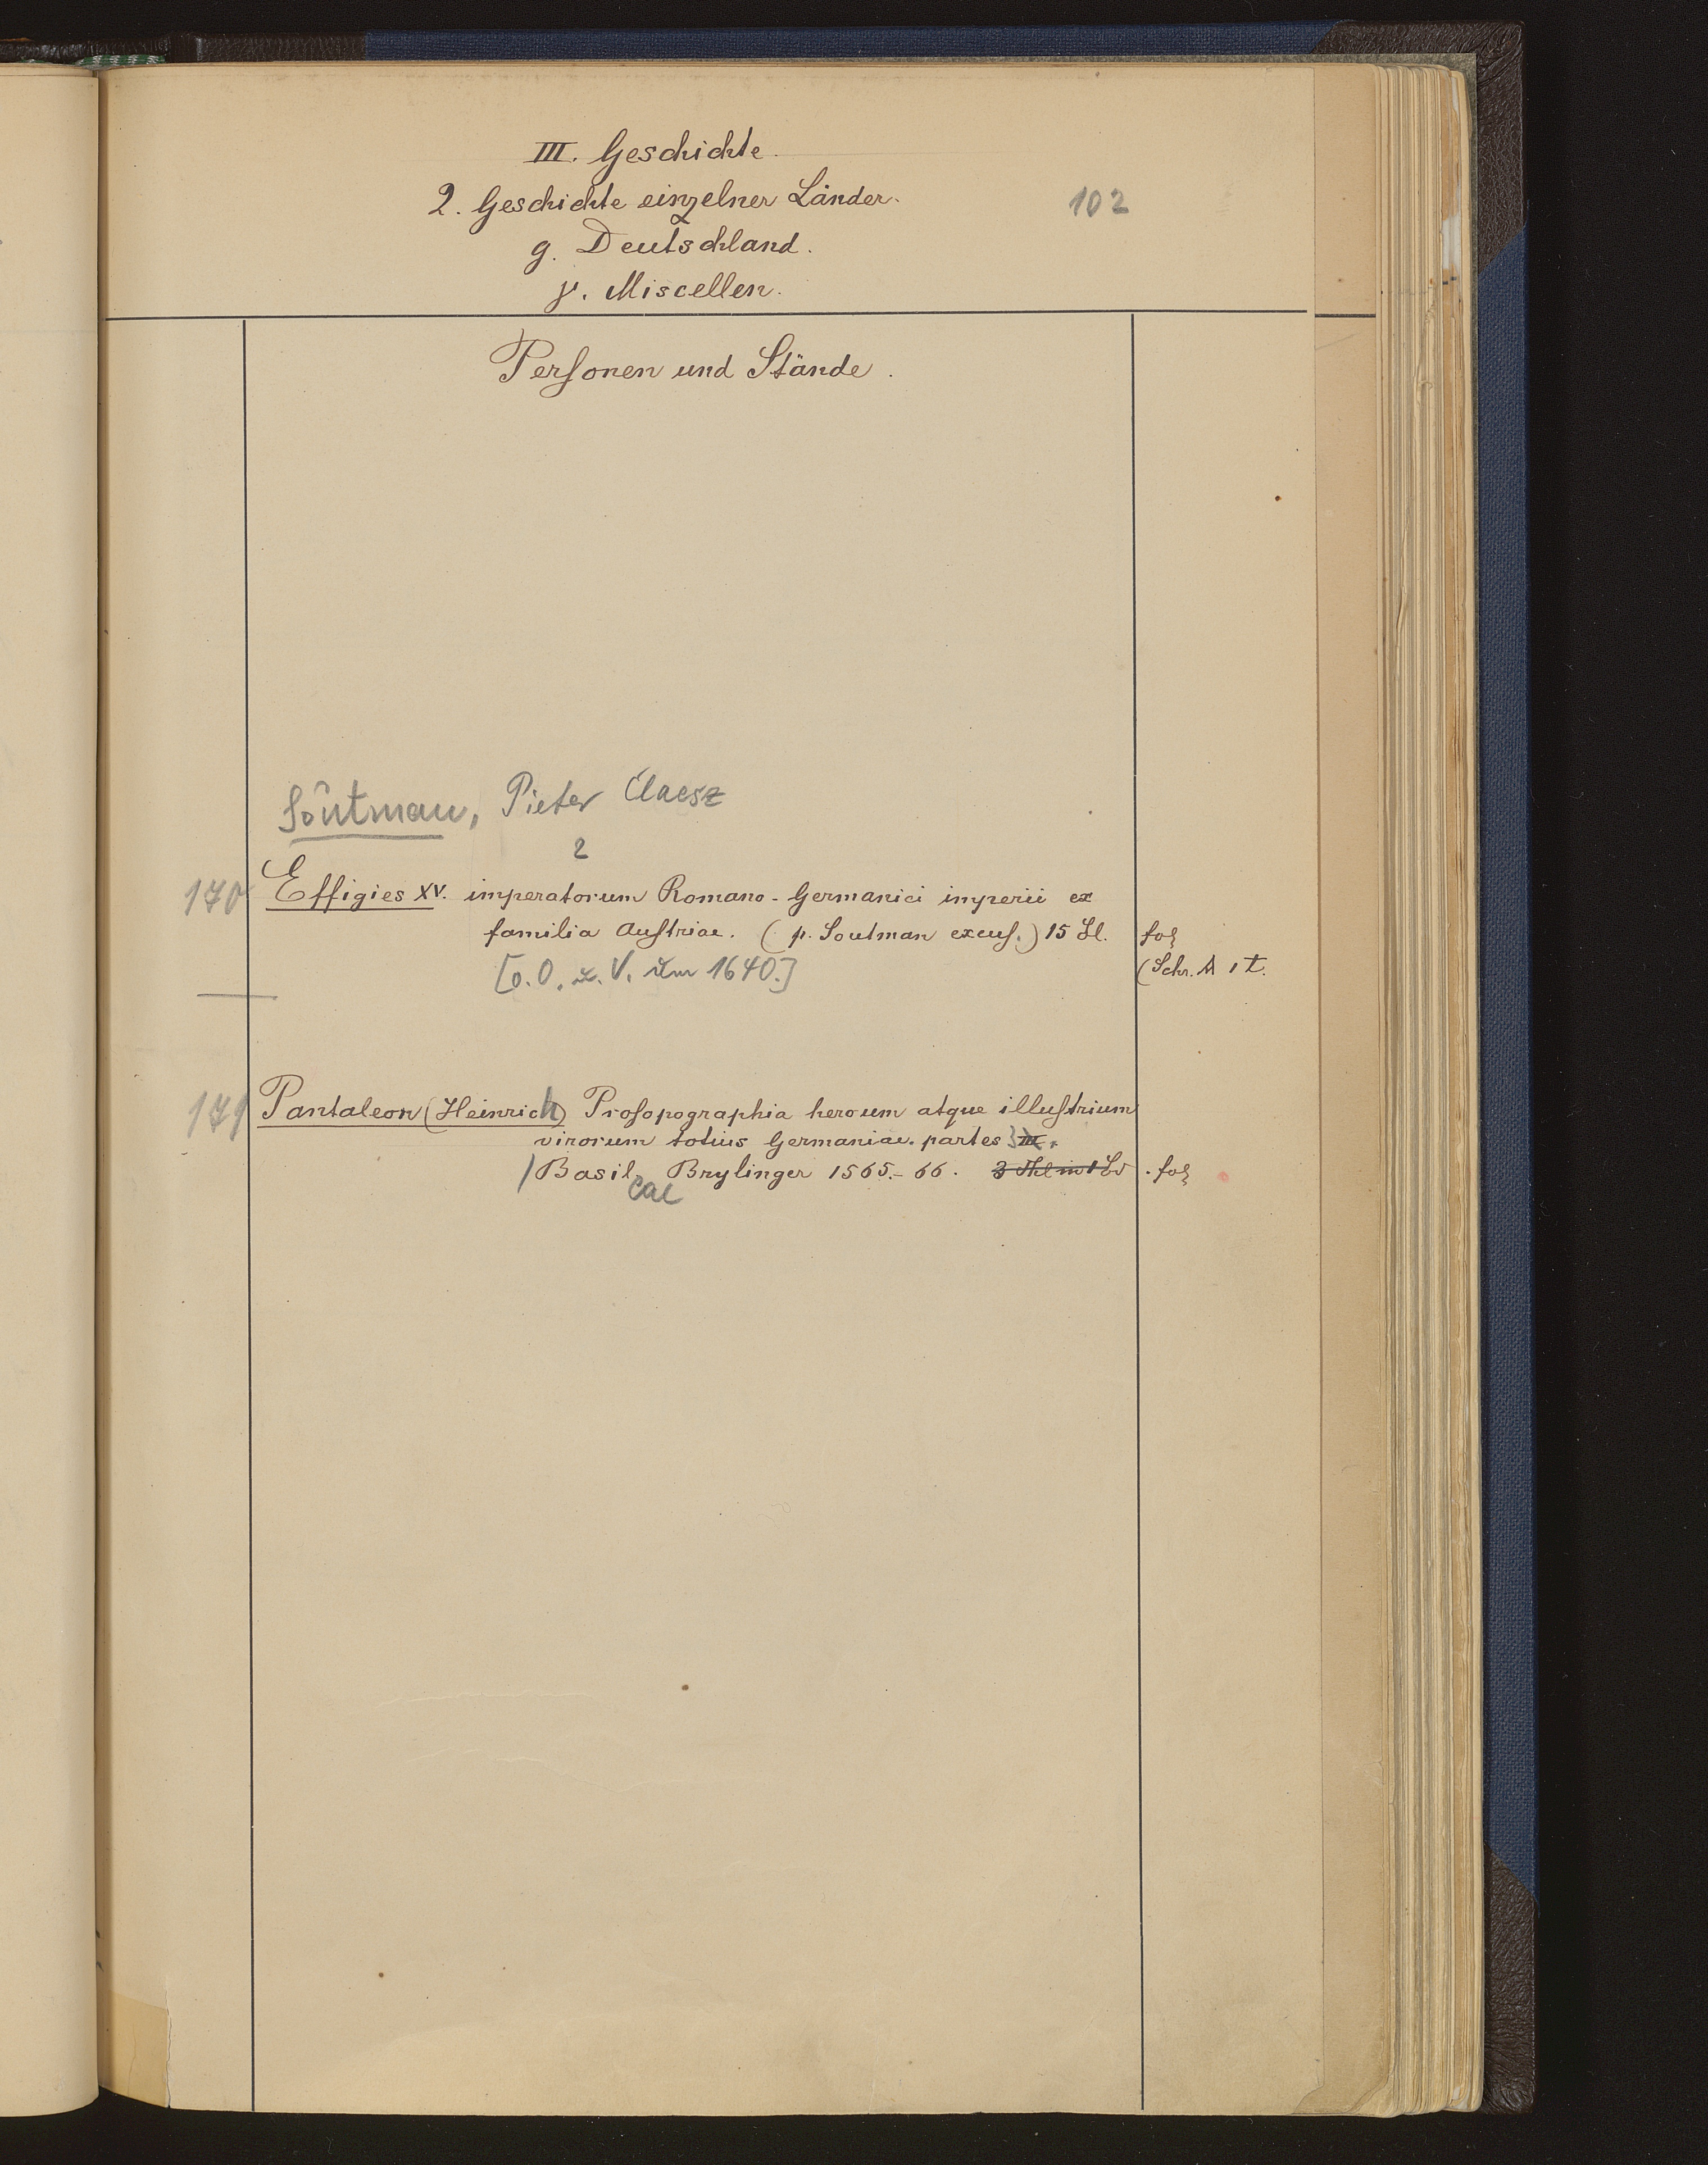 III. Geschichte.
2. Geschichte einzelner Länder.
102
g. Deutschland.
γ. Miscellen.
Personen und Stände.
Soutman, Pieter Claesz
2
170 Effigies XV. imperatorum Romano-Germanici imperii ex
familia Austriae. (p. Soutman excus.) 15 Bl. fol
[o. O. u. V. um 1640.] (Schr. A 1 t.
171 Pantaleon (Heinrich) Prosopographia heroum atque illustrium
virorum totius Germaniae. partes III.
Basil Brylinger 1565.-66. 3 Thl in 1 Bd. fol
eae